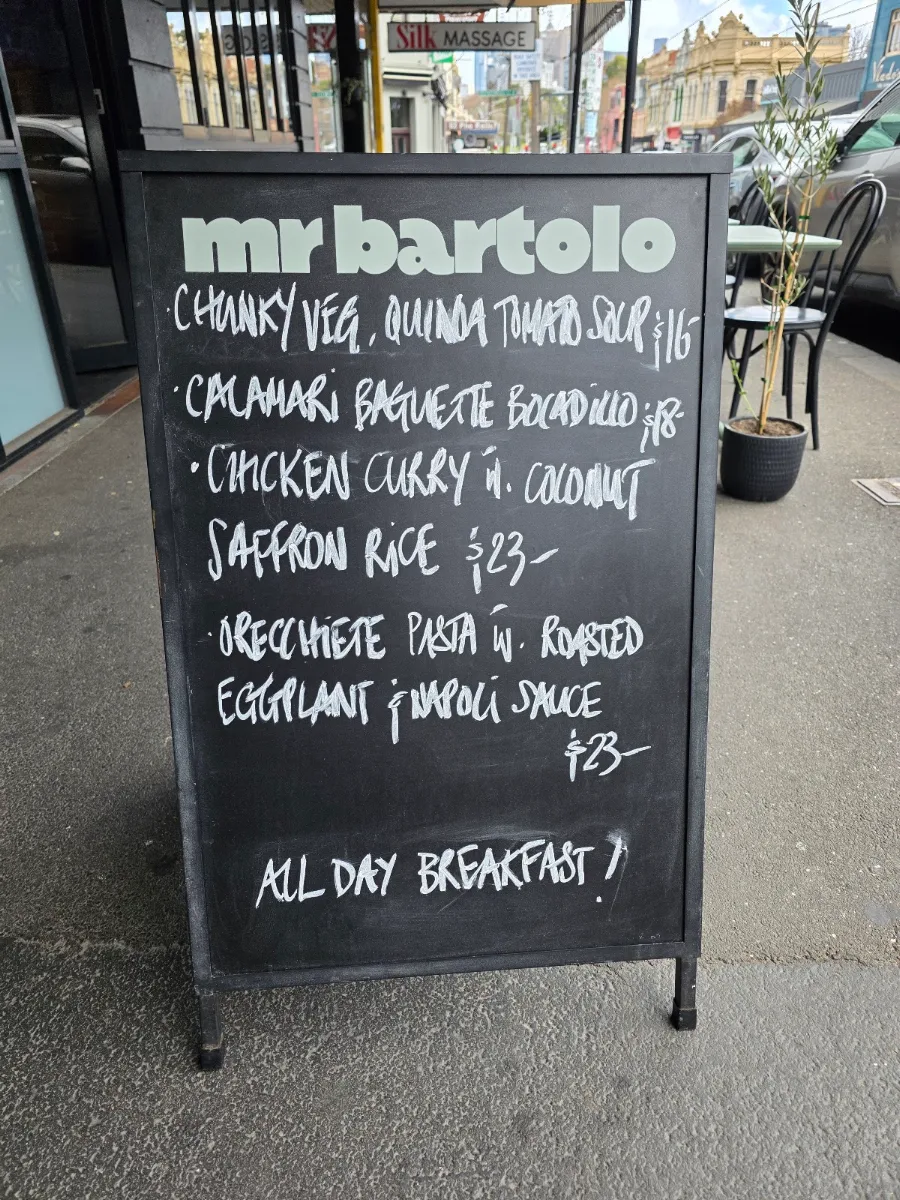 Silk MASSAGE
mr bartolo
· CHUNKY VEG, QUINOA TOMATO SOUP $16-
· CALAMARi BAGUETTE BOCADiLLO $18-
· CHICKEN CURRY W. COCONUT
SAFFRON RiCE $23-
· ORECCHiETE PASTA W. ROASTED
EGGPLANT & NAPOLi SAUCE
$23-
ALL DAY BREAKFAST!